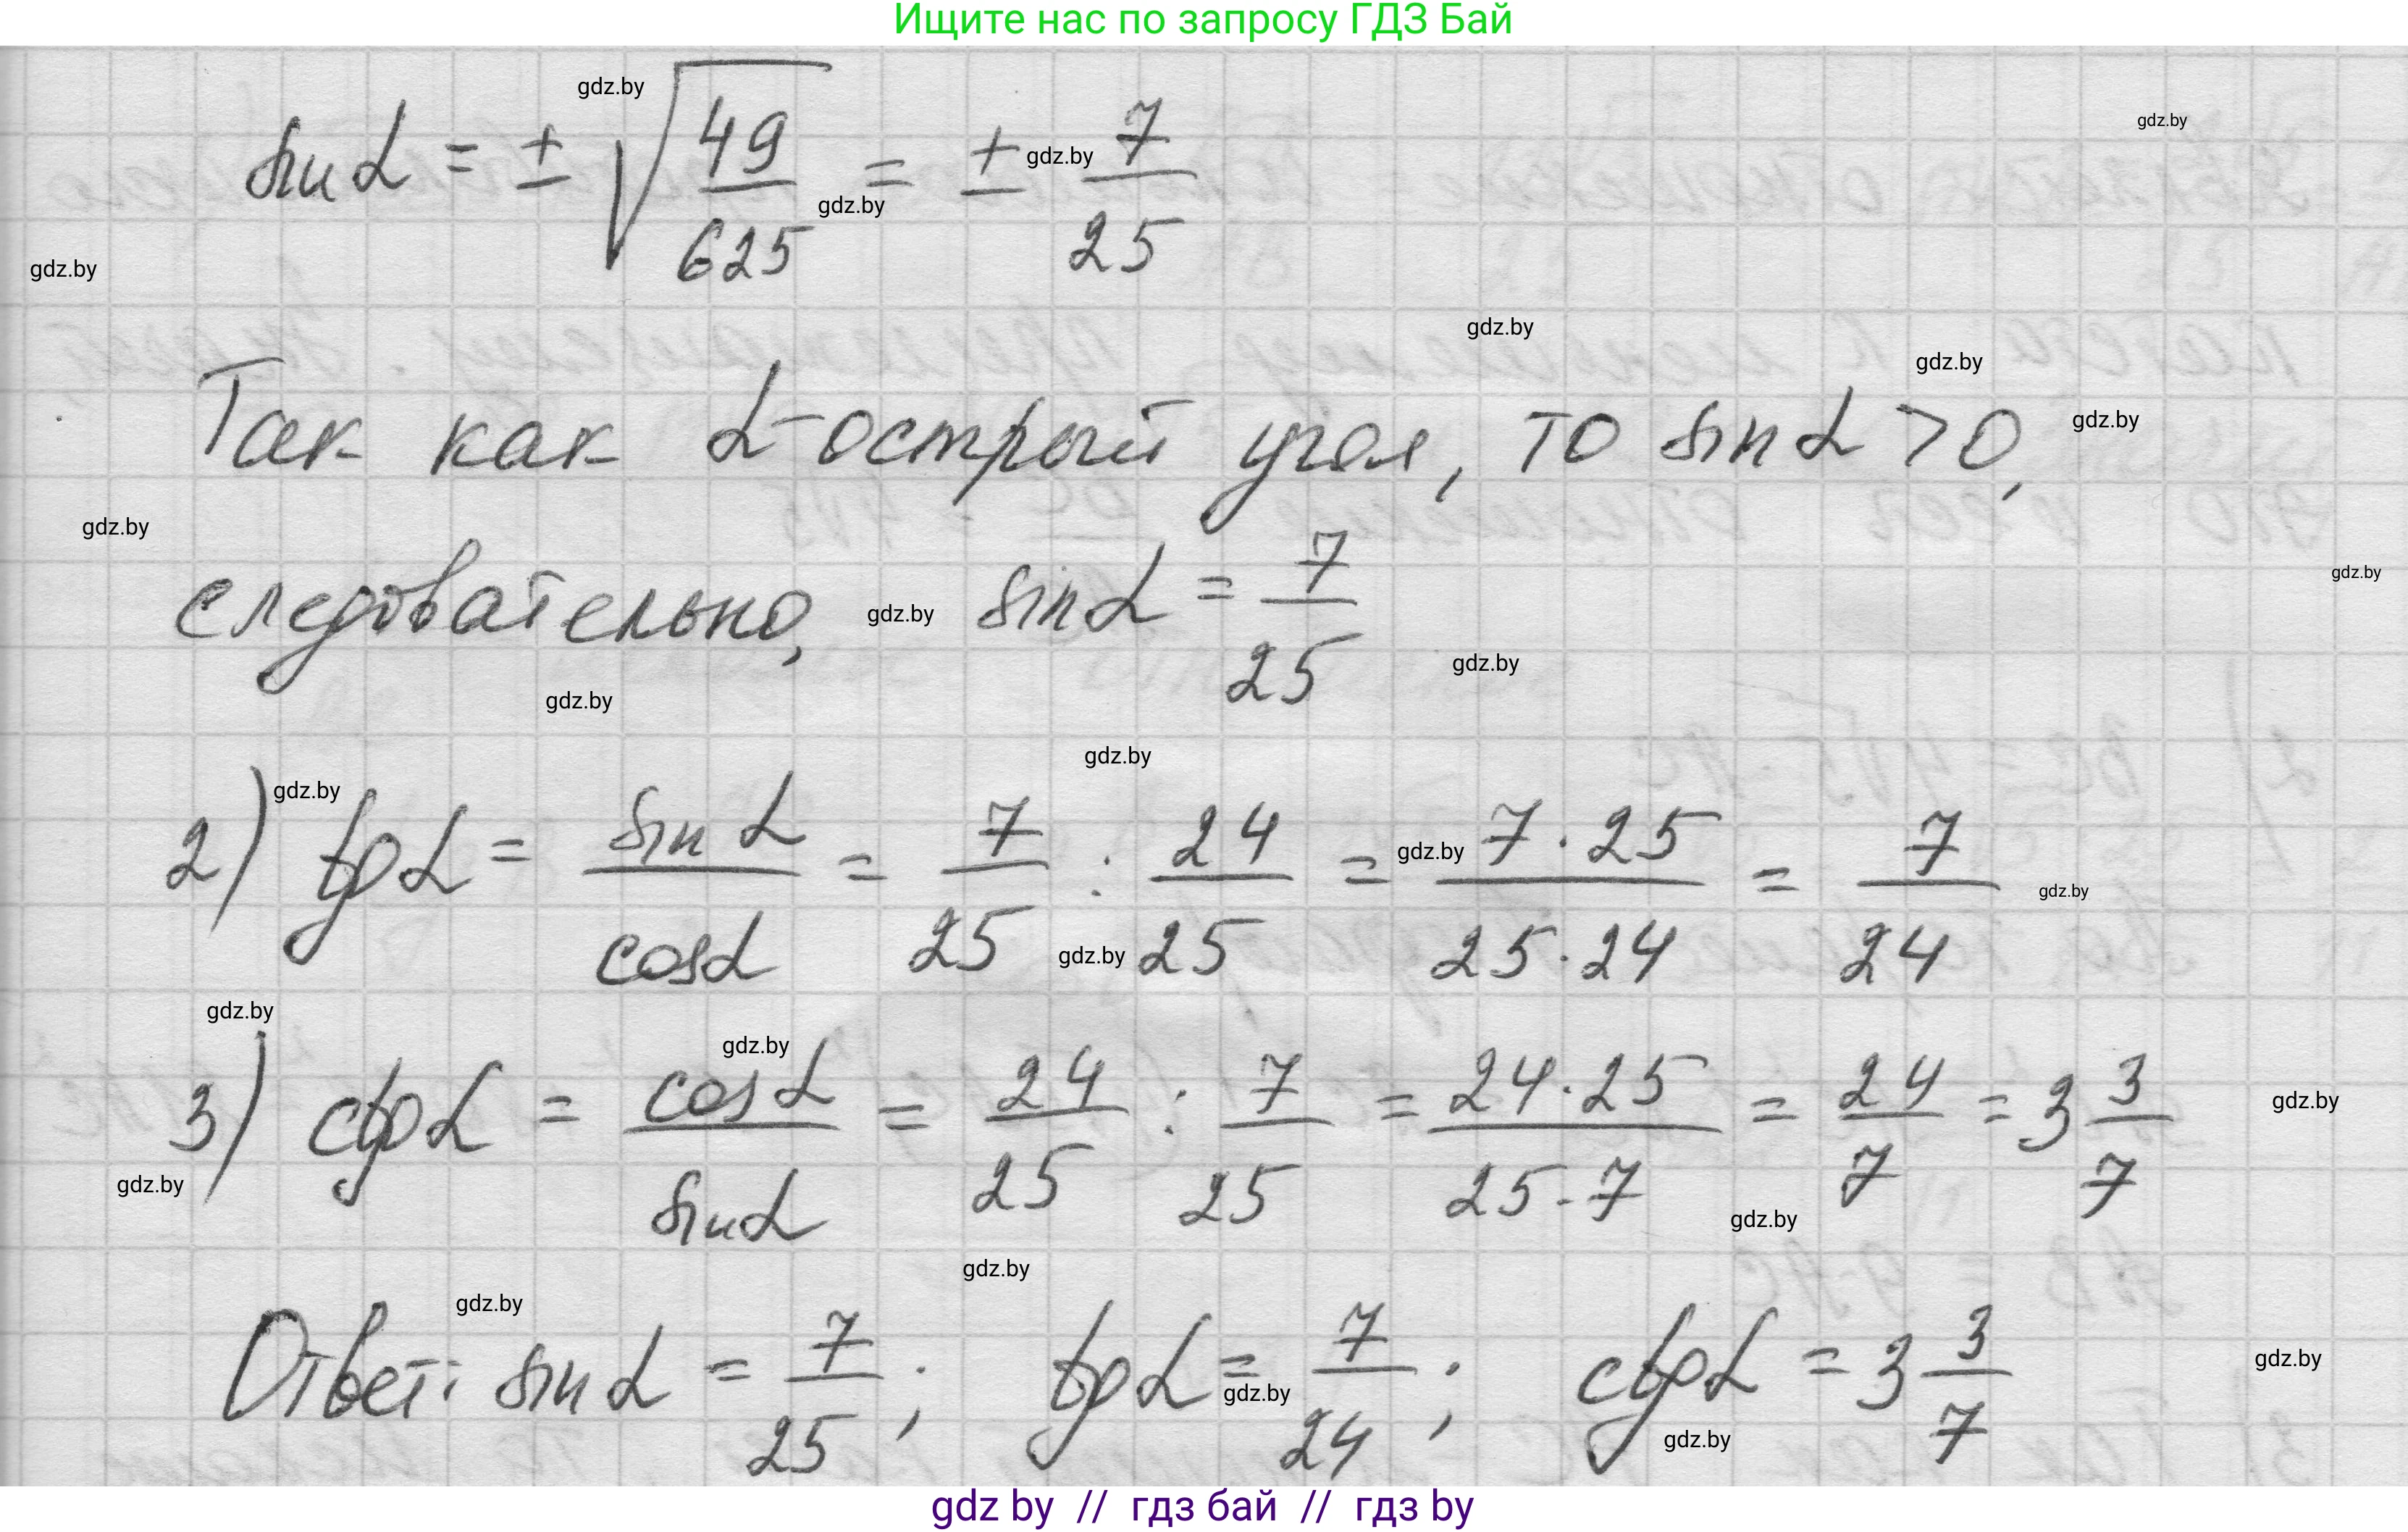 Ищите нас по запросу ГДЗ Бай
sin α = ± √(49/625) = ± 7/25
Так как α - острый угол, то sin α > 0,
следовательно, sin α = 7/25
2) tg α = sin α / cos α = 7/25 : 24/25 = 7·25 / 25·24 = 7/24
3) ctg α = cos α / sin α = 24/25 : 7/25 = 24·25 / 25·7 = 24/7 = 3 3/7
Ответ: sin α = 7/25; tg α = 7/24; ctg α = 3 3/7
gdz by // гдз бай // гдз by